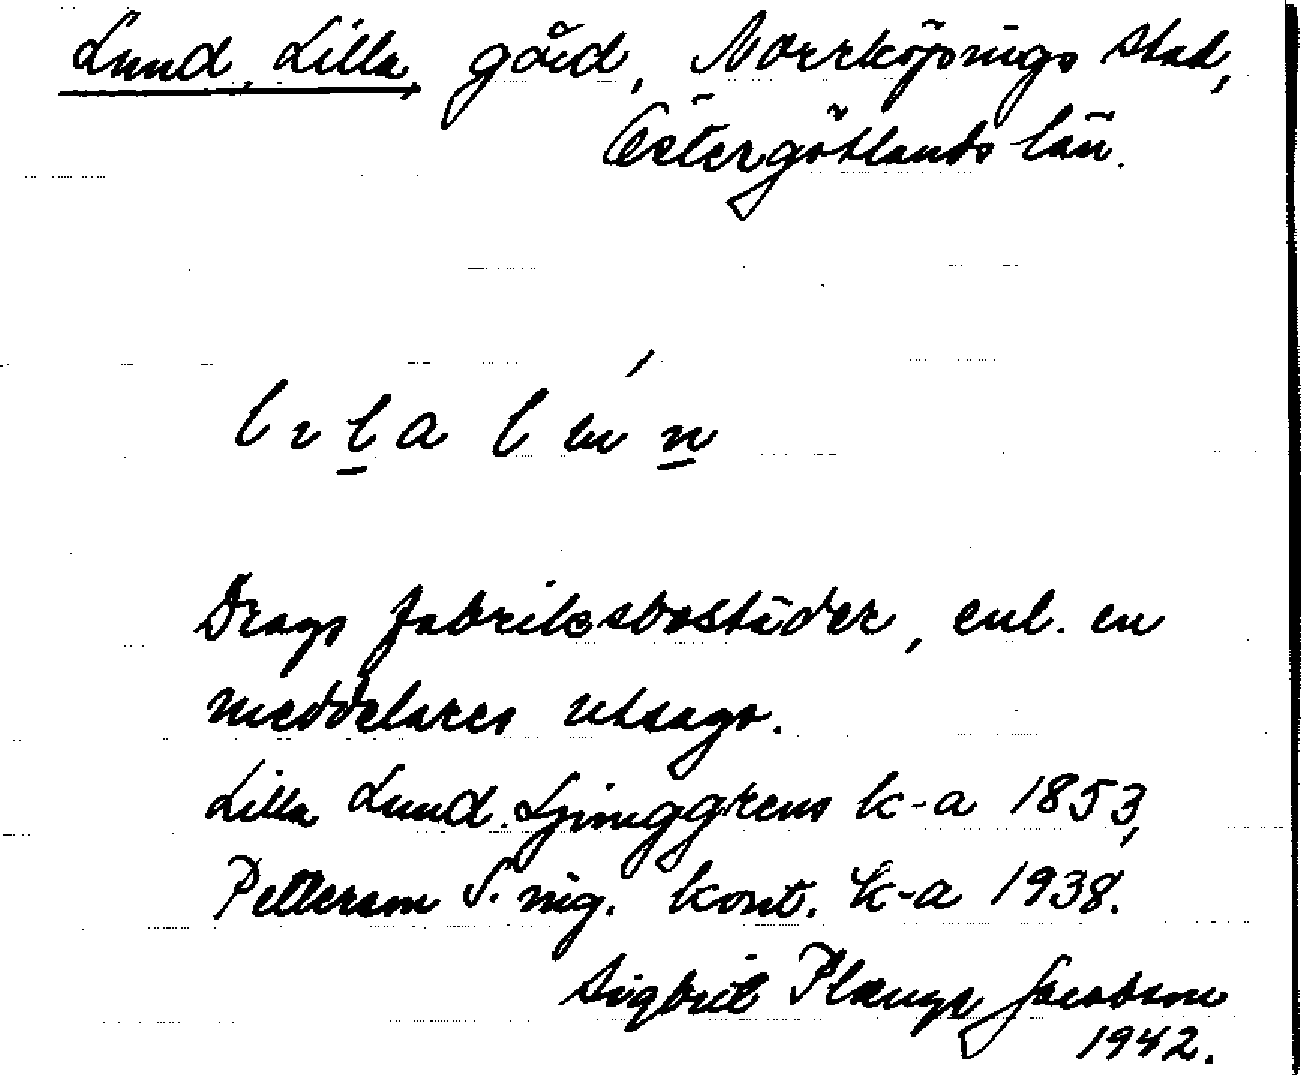 Lund, Lilla, gård, Norrköpings stad,
Östergötlands län.
Drags fabriksbostäder, enl. en
meddelares utsago.
Lilla Lund. Ljunggrens k-a 1853,
Pettersson S. ing. kont. k-a 1938.
Sigbrit Plænge Jacobson
1942.